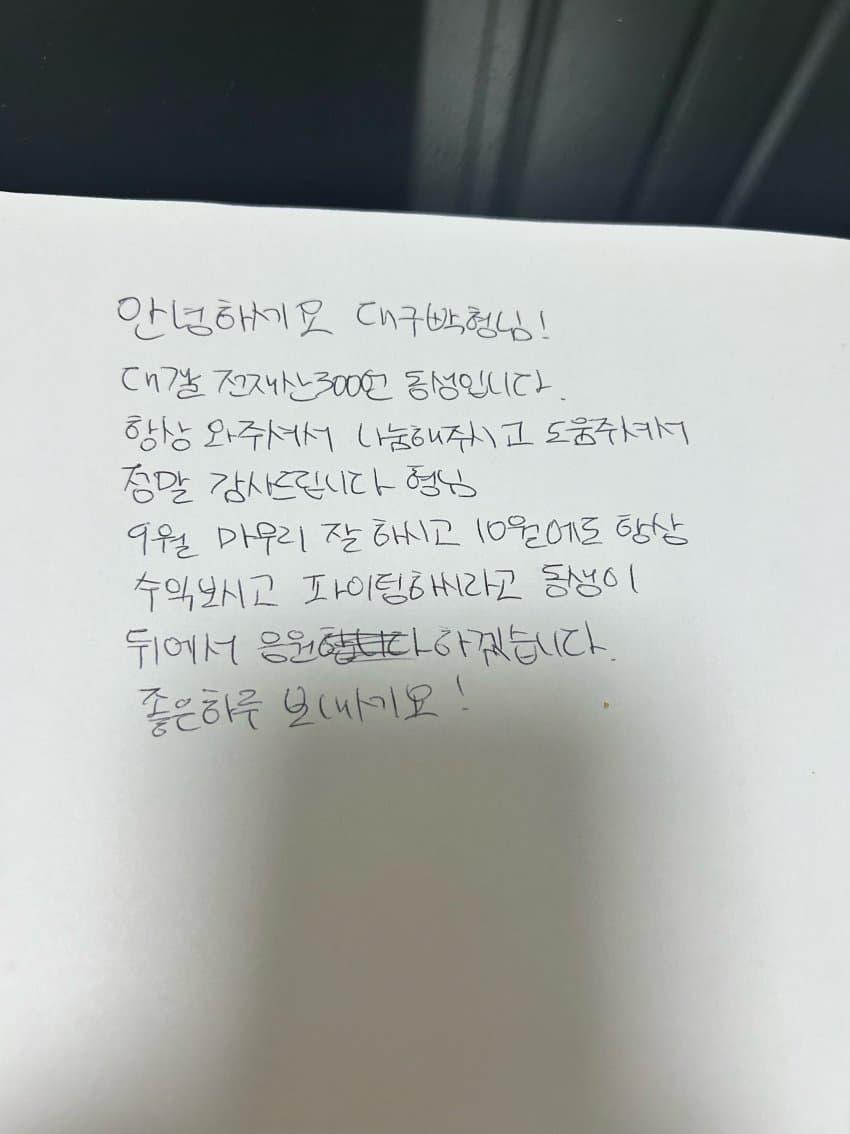 안녕하세요 대구박형님!
대갤 전재산300언 동생입니다.
항상 와주셔서 나눔해주시고 도움주셔서
정말 감사드립니다 형님
9월 마무리 잘 하시고 10월에도 항상
수익보시고 파이팅하시라고 동생이
뒤에서 응원합니다하겠습니다.
좋은하루 보내세요!